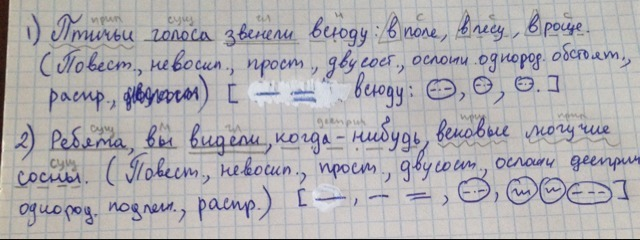 прил сущ гл н с с с
1) Птичьи голоса звенели всюду: в поле, в лесу, в роще.
(Повест., невоскл., прост., двусост., ослож. однород. обстоят.,
распр.,) [ всюду: , , .]
сущ м гл дееприч прил прил
2) Ребята, вы видели, когда-нибудь, вековые могучие
сущ
сосны. (Повест., невоскл., прост., двусост, ослож дееприч
однород. подлеж., распр.) [ , , , ]